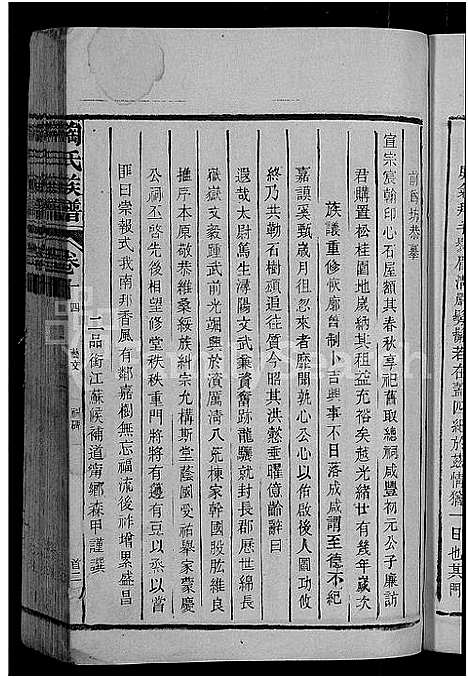 一日也其門
前民坊恭摹
宣宗宸翰印心石屋額其春秋享祀舊取總祠咸豐初元公子廉訪
君購置松桂園地歲納其租益充裕矣越光緒廿有幾年歲次
族議重修恢廓舊制諏吉興事不日落成咸謂至德不紀
嘉謨奚甄歲月忽徂來者靡聞執心公心以佑啟後人圖功攸
終乃共勒石樹頑遹往質今昭其洪憖垂曜億齡辭曰
遐哉大尉篤生潯陽文武兼資奮跡龍驤就封長郡厯世綿長
嶽嶽文毅踵武前光翊興於濱厲清八荒棟家幹國股肱維良
推序本原敬恭維桑綏族糾宗九構斯堂蔭國受祐舉家蒙慶
公祠丕啓先後相望修堂秩秩重門將將有籩有豆以烝以嘗
匪曰崇報式我南邦香風有鄰嘉樹無忘福流後祚增累盛昌
二品銜江蘇候補道甯鄉森甲謹撰
陶氏族譜
卷十四
藝文
祠碑
首二